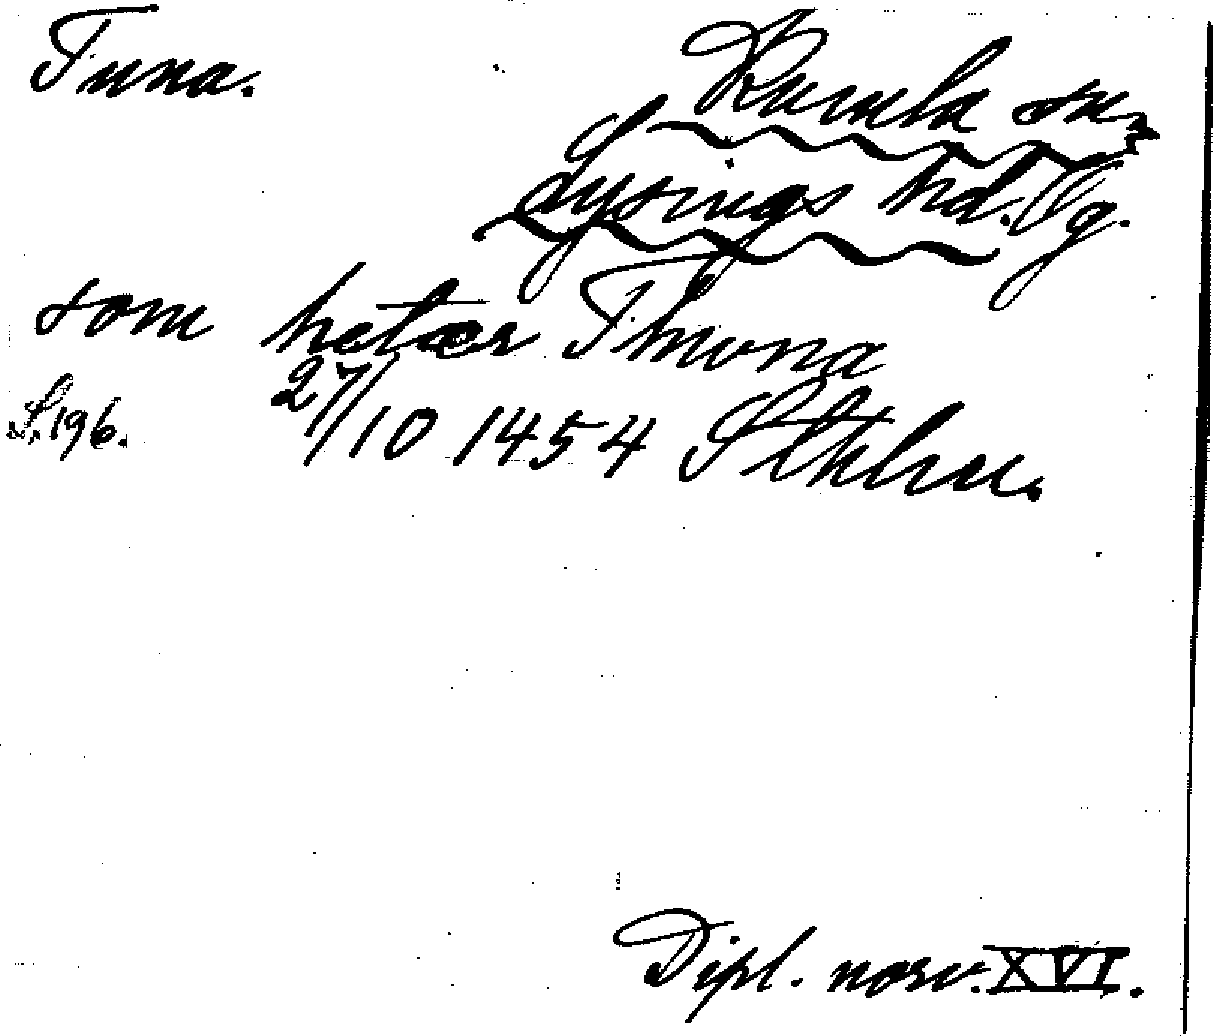 Tuna.
Kumla sn,
Lysings hd. Ög.
som hetær Thwna
S. 196.
27/10 1454 Sthlm.
Dipl. norv. XVI.